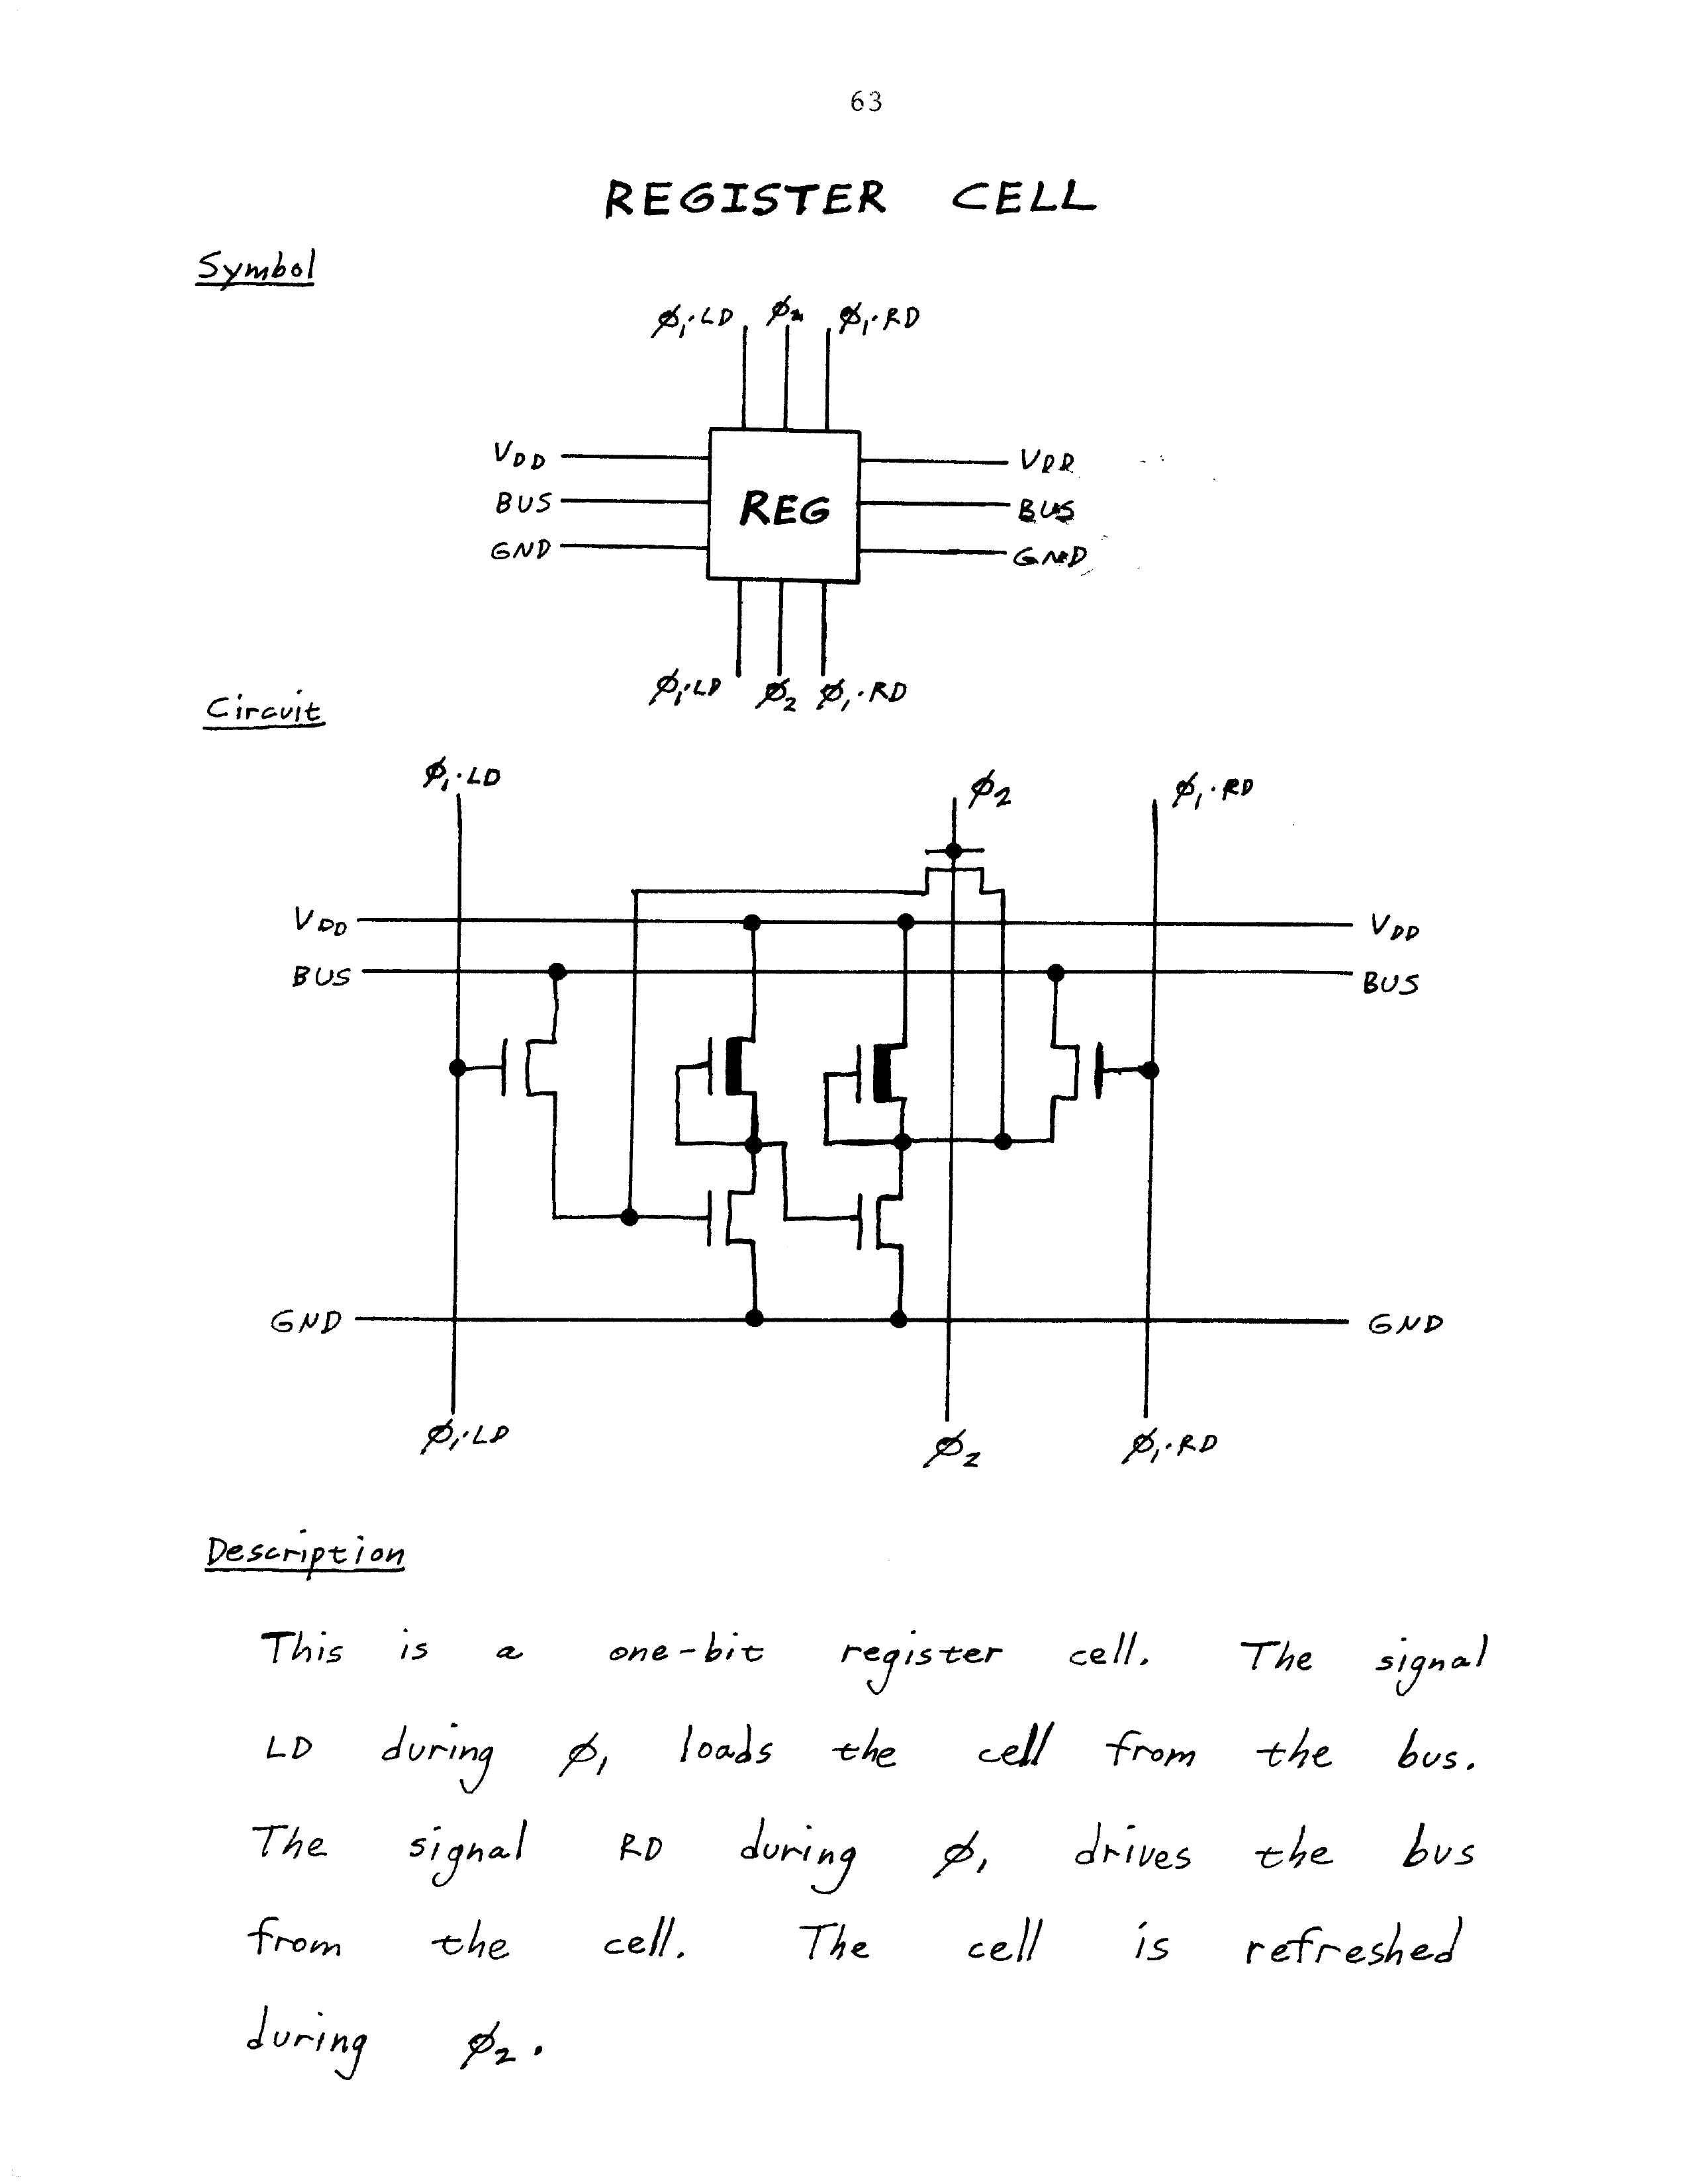 63
REGISTER CELL
Symbol
ϕ₁·LD ϕ₂ ϕ₁·RD
VDD VDD
BUS REG BUS
GND GND
ϕ₁·LD ϕ₂ ϕ₁·RD
Circuit
ϕ₁·LD ϕ₂ ϕ₁·RD
VDD VDD
BUS BUS
GND GND
ϕ₁·LD ϕ₂ ϕ₁·RD
Description
This is a one-bit register cell. The signal
LD during ϕ₁ loads the cell from the bus.
The signal RD during ϕ₁ drives the bus
from the cell. The cell is refreshed
during ϕ₂.